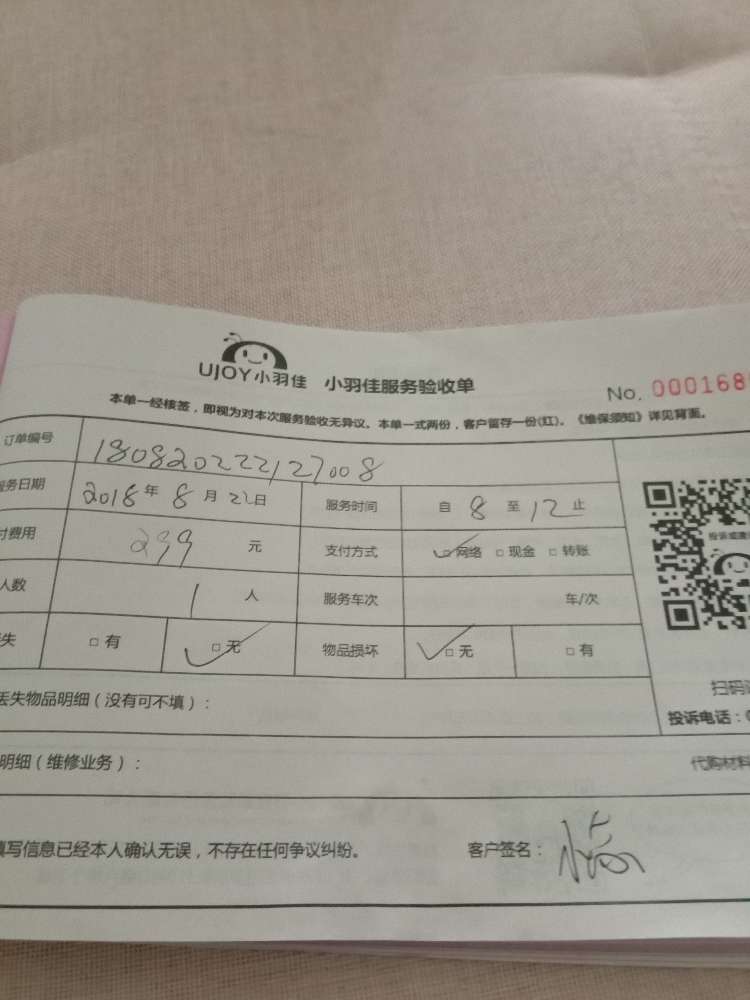 UJOY小羽佳 小羽佳服务验收单
No. 000168
本单一经核签，即视为对本次服务验收无异议。本单一式两份，客户留存一份(红)。《维保须知》详见背面。
订单编号 180820222127008
务日期 2018年8月22日 服务时间 自8至12止
付费用 299元 支付方式 ✓□网络 □现金 □转账
人数 1人 服务车次 车/次
失 □有 ✓□无 物品损坏 ✓□无 □有
丢失物品明细（没有可不填）：
扫码
投诉电话：0
明细（维修业务）： 代购材料
填写信息已经本人确认无误，不存在任何争议纠纷。 客户签名：